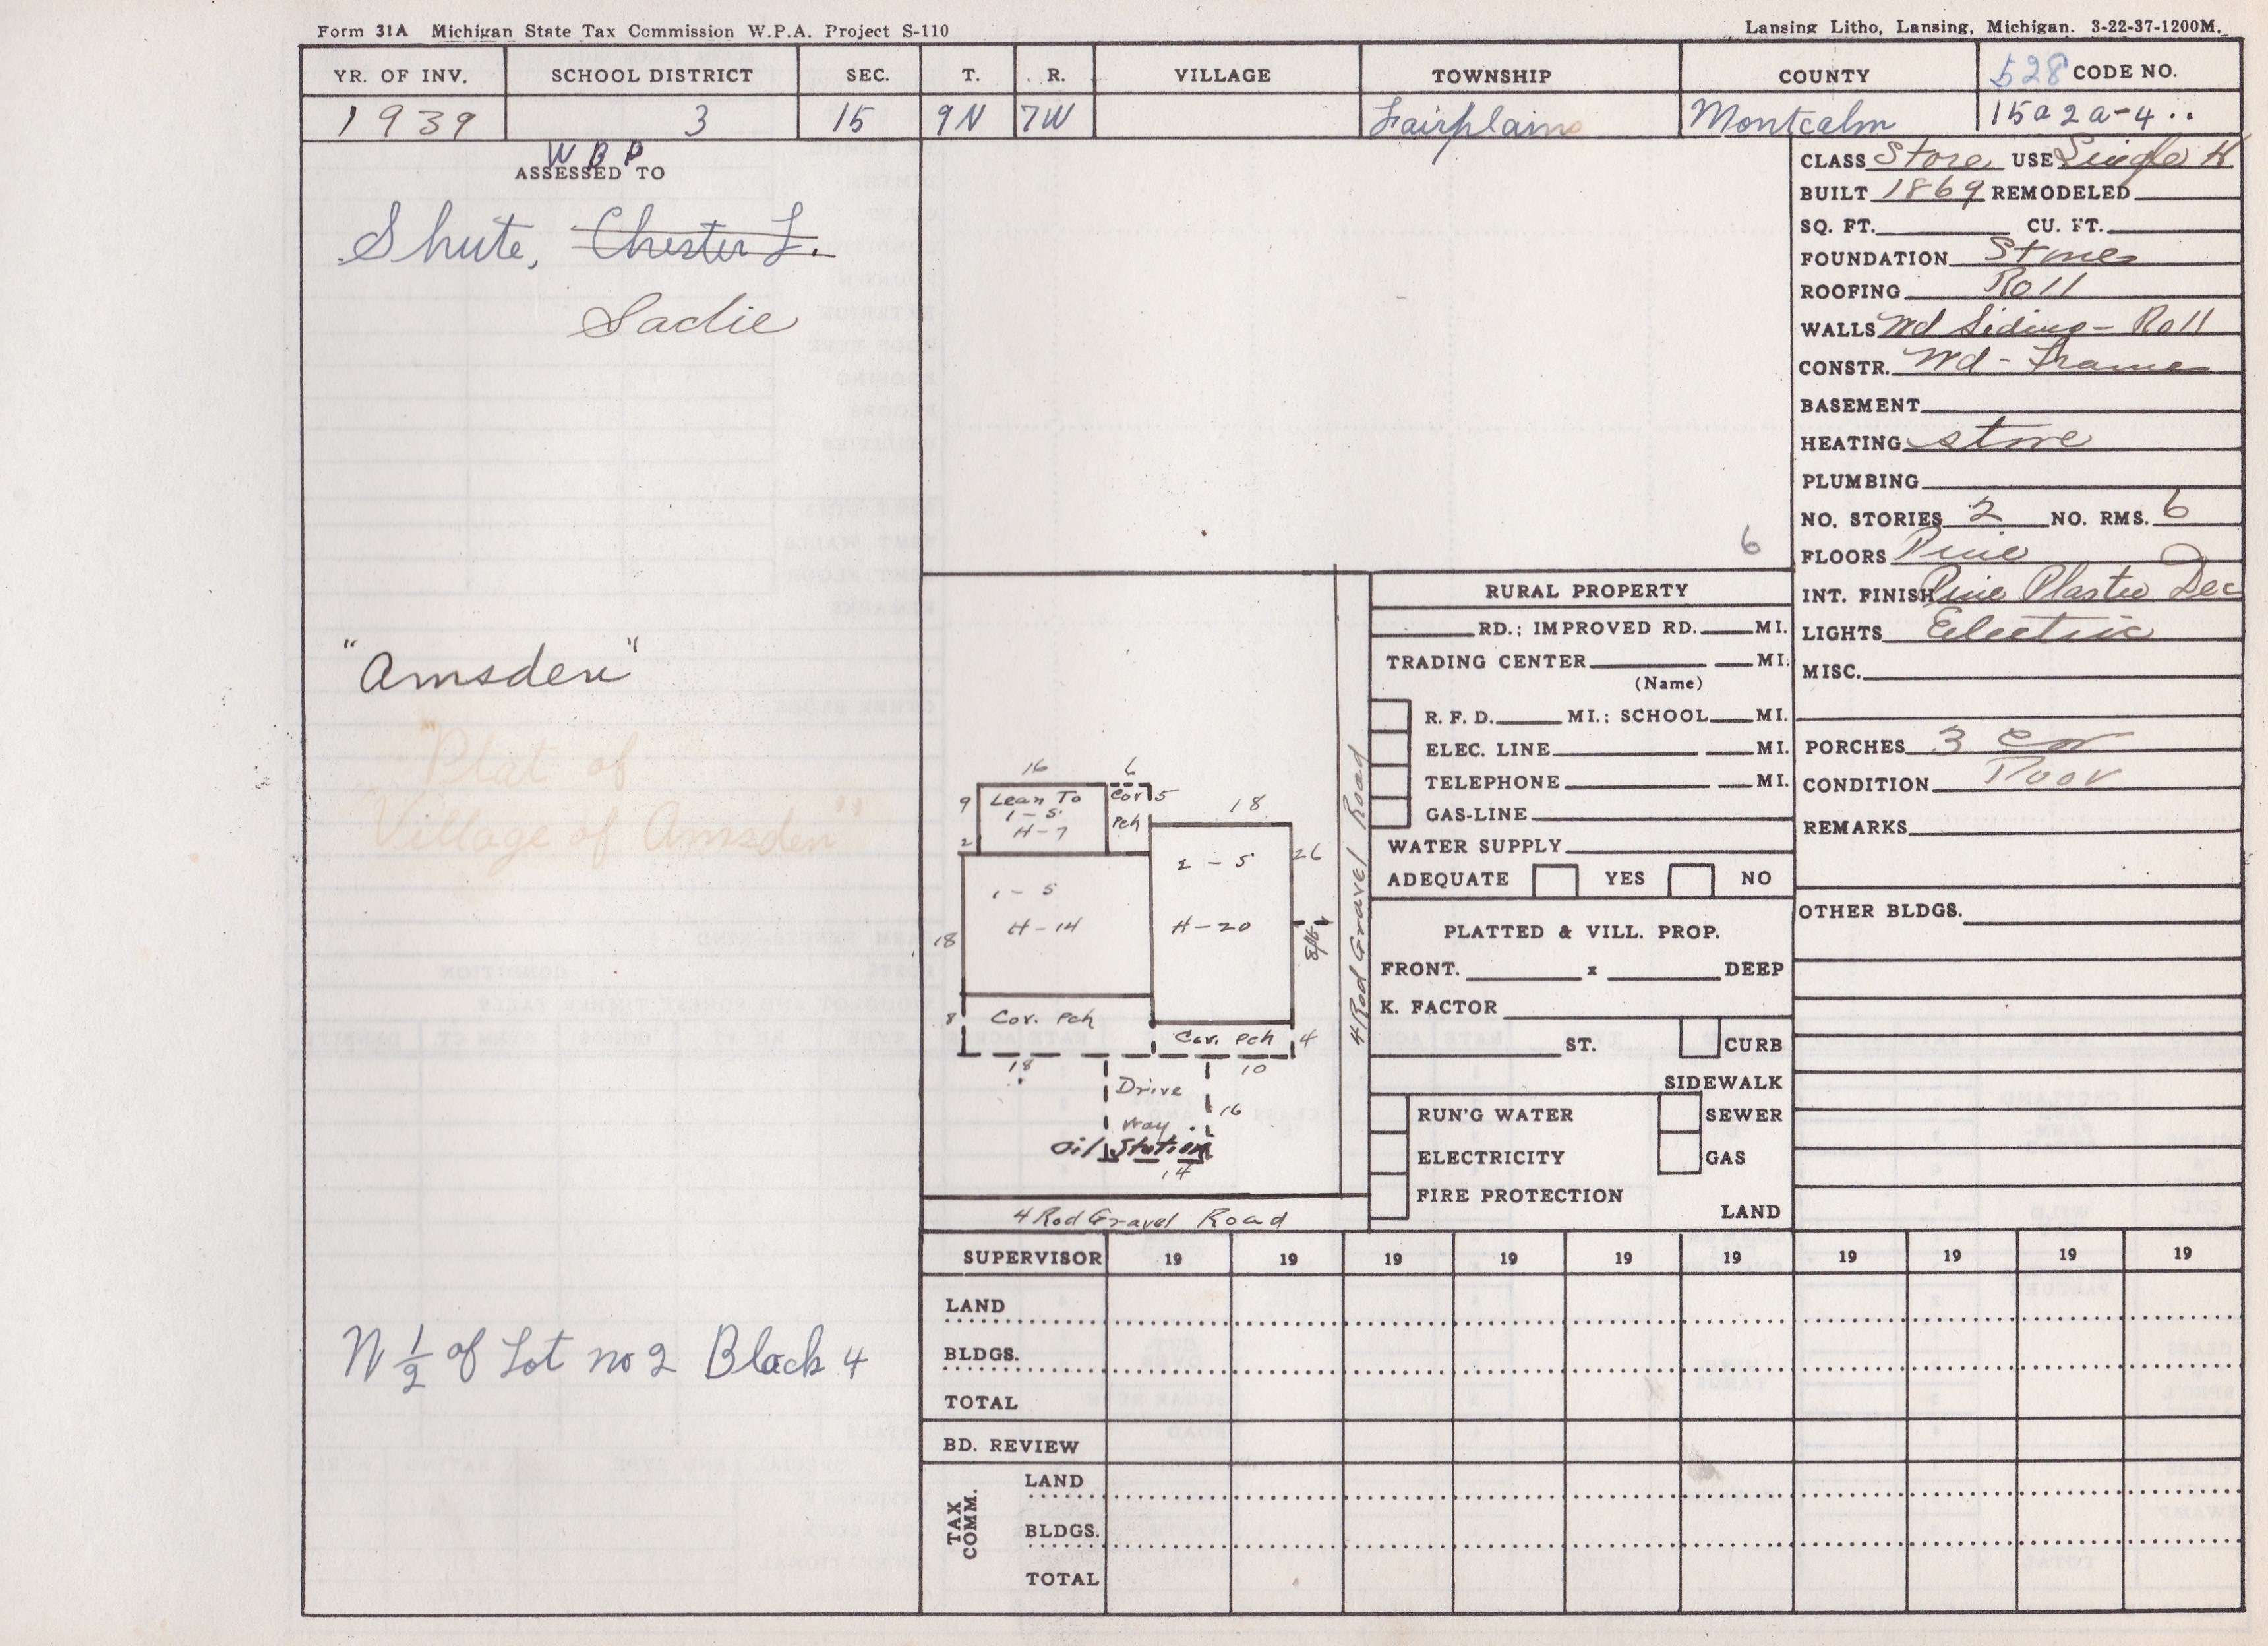 Form 31A Michigan State Tax Commission W.P.A. Project S-110
Lansing Litho, Lansing, Michigan. 3-22-37-1200M.
YR. OF INV. SCHOOL DISTRICT SEC. T. R. VILLAGE TOWNSHIP COUNTY 528 CODE NO.
1939 3 15 9N 7W Fairplains Montcalm 15a2a-4..
W B P
ASSESSED TO
Shute, Chester L.
Sadie
"Amsden"
"Plat of
Village of Amsden"
N 1/2 of Lot no 2 Block 4
6
16 6
9 Lean To Cov 5 18
1-S
H-7 Pch
2
2-S 26
1-S
H-14 H-20
18
8 ft
8 Cov. Pch
Cov. Pch 4
18 10
Drive
Way 16
Oil Station
14
4 Rod Gravel Road
4 Rod Gravel Road
RURAL PROPERTY
RD.; IMPROVED RD. MI.
TRADING CENTER MI.
(Name)
R. F. D. MI.; SCHOOL MI.
ELEC. LINE MI.
TELEPHONE MI.
GAS-LINE
WATER SUPPLY
ADEQUATE YES NO
PLATTED & VILL. PROP.
FRONT. x DEEP
K. FACTOR
ST. CURB
SIDEWALK
RUN'G WATER SEWER
ELECTRICITY GAS
FIRE PROTECTION
LAND
CLASS Store USE Single H
BUILT 1869 REMODELED
SQ. FT. CU. FT.
FOUNDATION Stones
ROOFING Roll
WALLS Wd Siding - Roll
CONSTR. Wd - Frame
BASEMENT
HEATING stove
PLUMBING
NO. STORIES 2 NO. RMS. 6
FLOORS Pine
INT. FINISH Pine Plaster Dec
LIGHTS Electric
MISC.
PORCHES 3 Cov
CONDITION Poor
REMARKS
OTHER BLDGS.
SUPERVISOR 19 19 19 19 19 19 19 19 19 19
LAND
BLDGS.
TOTAL
BD. REVIEW
TAX COMM.
LAND
BLDGS.
TOTAL